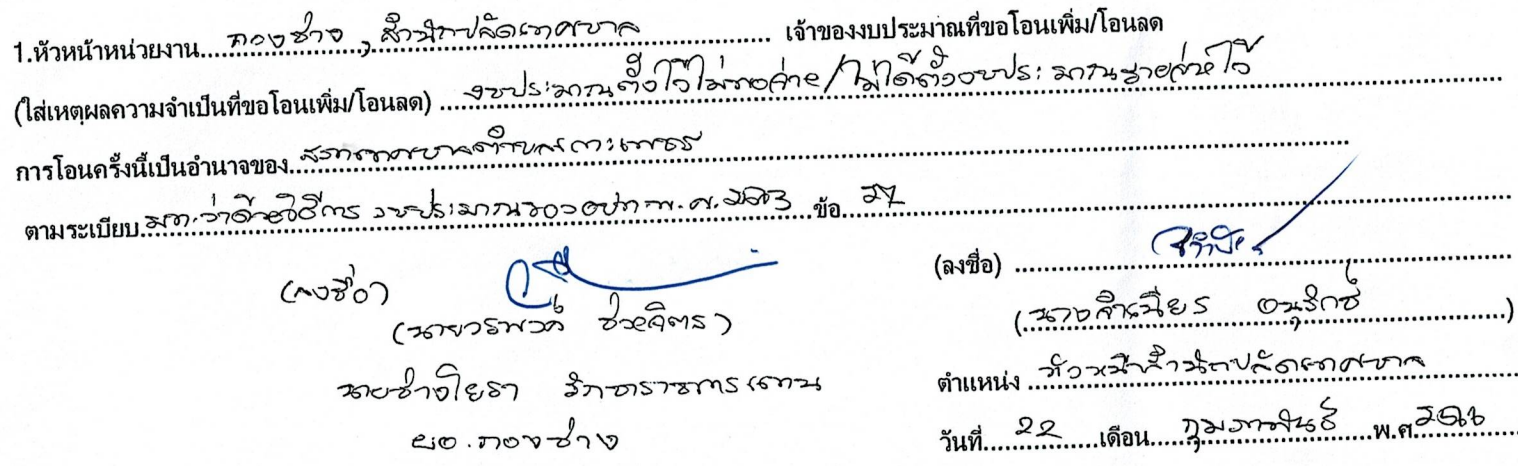 1.หัวหน้าหน่วยงาน....กองช่าง , สำนักปลัดเทศบาล.... เจ้าของงบประมาณที่ขอโอนเพิ่ม/โอนลด
(ใส่เหตุผลความจำเป็นที่ขอโอนเพิ่ม/โอนลด) ....งบประมาณตั้งไว้ไม่พอจ่าย/ไม่ได้ตั้งงบประมาณรายจ่ายไว้
การโอนครั้งนี้เป็นอำนาจของ....สภาเทศบาลตำบลเกาะเพชร....
ตามระเบียบ....มท.ว่าด้วยวิธีการงบประมาณของ อปท. พ.ศ. 2563....ข้อ....27....
(ลงชื่อ)
(นายวรพงค์ ช่วยจิตร)
นายช่างโยธา รักษาราชการแทน
ผอ.กองช่าง
(ลงชื่อ) ....
(นางจำเนียร อนุรักษ์)
ตำแหน่ง ....หัวหน้าสำนักปลัดเทศบาล....
วันที่....22....เดือน....กุมภาพันธ์....พ.ศ.2566